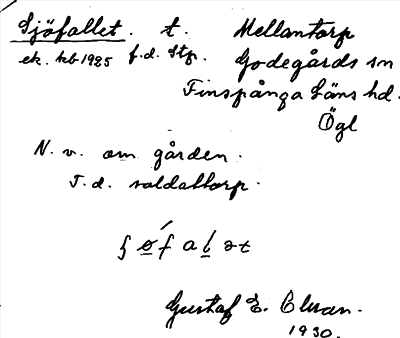 Sjöfallet. t. Mellantorp
ek. kb 1925 f.d. Stp. Godegårds sn
Finspånga Läns hd.
Ögl
N. v. om gården.
F. d. soldattorp.
Gustaf E.
1930.